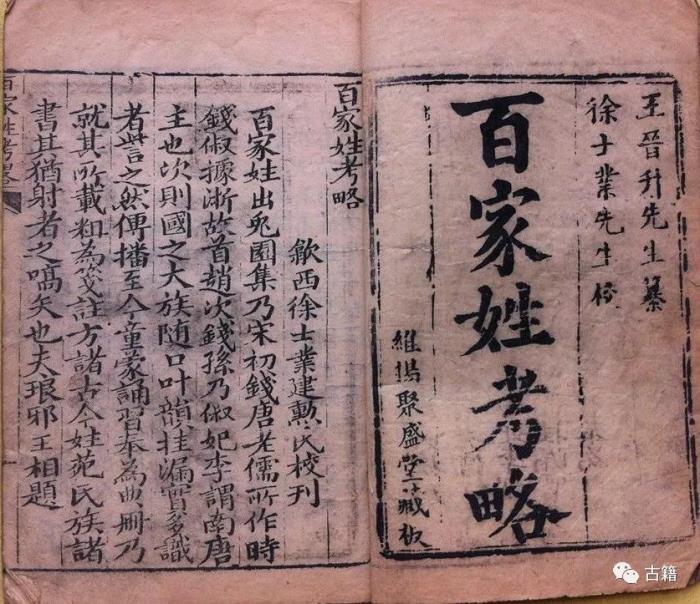 王晉升先生纂
徐士業先生校
百家姓考略
維揚聚盛堂藏板
百家姓考略
歙西徐士業建勲氏校刊
百家姓出兎園集乃宋初錢唐老儒所作時
錢俶據浙故首趙次錢孫乃俶妃李謂南唐
主也次則國之大族随口叶韻挂漏實多識
者訾之然傳播至今童蒙誦習奉為典冊乃
就其所載粗為箋註方諸古今姓苑氏族諸
書其猶射者之嚆矢也夫琅邪王相題
百家姓考畧
古籍